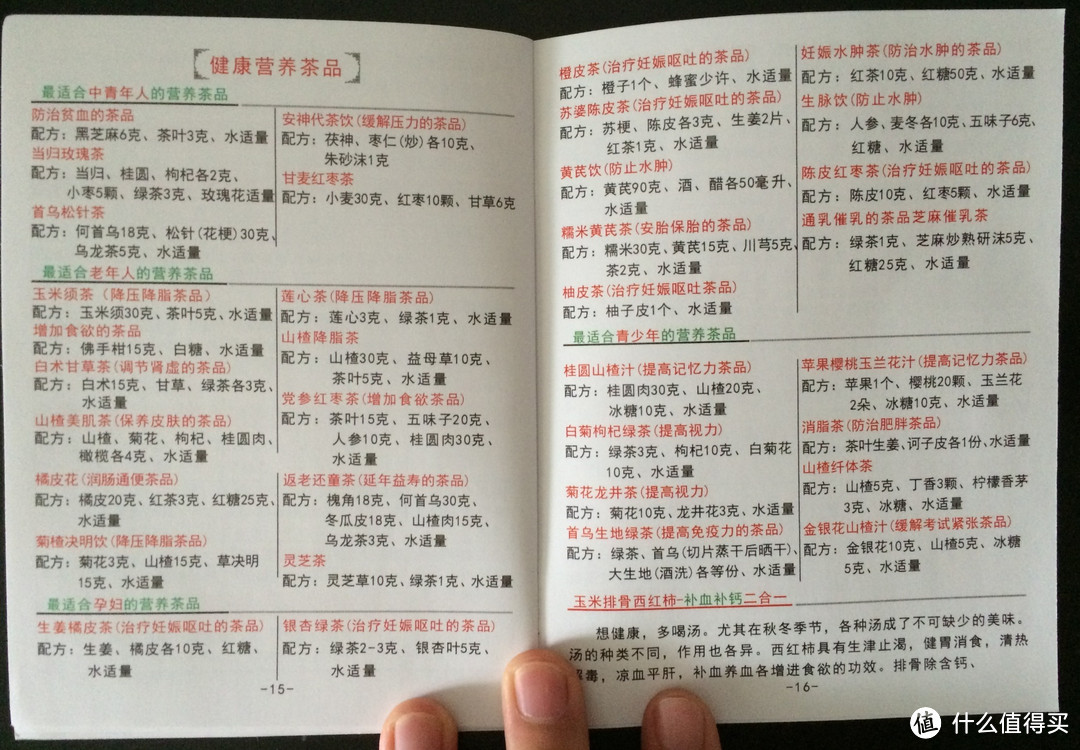 健康营养茶品
最适合中青年人的营养茶品
防治贫血的茶品
配方：黑芝麻6克、茶叶3克、水适量
当归玫瑰茶
配方：当归、桂圆、枸杞各2克、
小枣5颗、绿茶3克、玫瑰花适量
首乌松针茶
配方：何首乌18克、松针(花梗)30克、
乌龙茶5克、水适量
安神代茶饮(缓解压力的茶品)
配方：茯神、枣仁(炒)各10克、
朱砂沫1克
甘麦红枣茶
配方：小麦30克、红枣10颗、甘草6克
最适合老年人的营养茶品
玉米须茶（降压降脂茶品）
配方：玉米须30克、茶叶5克、水适量
增加食欲的茶品
配方：佛手柑15克、白糖、水适量
白术甘草茶(调节肾虚的茶品)
配方：白术15克、甘草、绿茶各3克、
水适量
山楂美肌茶(保养皮肤的茶品)
配方：山楂、菊花、枸杞、桂圆肉、
橄榄各4克、水适量
橘皮花(润肠通便茶品)
配方：橘皮20克、红茶3克、红糖25克、
水适量
菊楂决明饮(降压降脂茶品)
配方：菊花3克、山楂15克、草决明
15克、水适量
莲心茶(降压降脂茶品)
配方：莲心3克、绿茶1克、水适量
山楂降脂茶
配方：山楂30克、益母草10克、
茶叶5克、水适量
党参红枣茶(增加食欲茶品)
配方：茶叶15克、五味子20克、
人参10克、桂圆肉30克、
水适量
返老还童茶(延年益寿的茶品)
配方：槐角18克、何首乌30克、
冬瓜皮18克、山楂肉15克、
乌龙茶3克、水适量
灵芝茶
配方：灵芝草10克、绿茶1克、水适量
最适合孕妇的营养茶品
生姜橘皮茶(治疗妊娠呕吐的茶品)
配方：生姜、橘皮各10克、红糖、
水适量
银杏绿茶(治疗妊娠呕吐的茶品)
配方：绿茶2-3克、银杏叶5克、
水适量
-15-
橙皮茶(治疗妊娠呕吐的茶品)
配方：橙子1个、蜂蜜少许、水适量
苏婆陈皮茶(治疗妊娠呕吐的茶品)
配方：苏梗、陈皮各3克、生姜2片、
红茶1克、水适量
黄芪饮(防止水肿)
配方：黄芪90克、酒、醋各50毫升、
水适量
糯米黄芪茶(安胎保胎的茶品)
配方：糯米30克、黄芪15克、川芎5克、
茶2克、水适量
柚皮茶(治疗妊娠呕吐茶品)
配方：柚子皮1个、水适量
妊娠水肿茶(防治水肿的茶品)
配方：红茶10克、红糖50克、水适量
生脉饮(防止水肿)
配方：人参、麦冬各10克、五味子6克、
红糖、水适量
陈皮红枣茶(治疗妊娠呕吐的茶品)
配方：陈皮10克、红枣5颗、水适量
通乳催乳的茶品芝麻催乳茶
配方：绿茶1克、芝麻炒熟研沫5克、
红糖25克、水适量
最适合青少年的营养茶品
桂圆山楂汁(提高记忆力茶品)
配方：桂圆肉30克、山楂20克、
冰糖10克、水适量
白菊枸杞绿茶(提高视力)
配方：绿茶3克、枸杞10克、白菊花
10克、水适量
菊花龙井茶(提高视力)
配方：菊花10克、龙井茶3克、水适量
首乌生地绿茶(提高免疫力的茶品)
配方：绿茶、首乌(切片蒸干后晒干)、
大生地(酒洗)各等份、水适量
苹果樱桃玉兰花汁(提高记忆力茶品)
配方：苹果1个、樱桃20颗、玉兰花
2朵、冰糖10克、水适量
消脂茶(防治肥胖茶品)
配方：茶叶生姜、诃子皮各1份、水适量
山楂纤体茶
配方：山楂5克、丁香3颗、柠檬香茅
3克、冰糖、水适量
金银花山楂汁(缓解考试紧张茶品)
配方：金银花10克、山楂5克、冰糖
5克、水适量
玉米排骨西红柿-补血补钙二合一
想健康，多喝汤。尤其在秋冬季节，各种汤成了不可缺少的美味。
汤的种类不同，作用也各异。西红柿具有生津止渴，健胃消食，清热
解毒，凉血平肝，补血养血各增进食欲的功效。排骨除含钙、
-16-
值 什么值得买